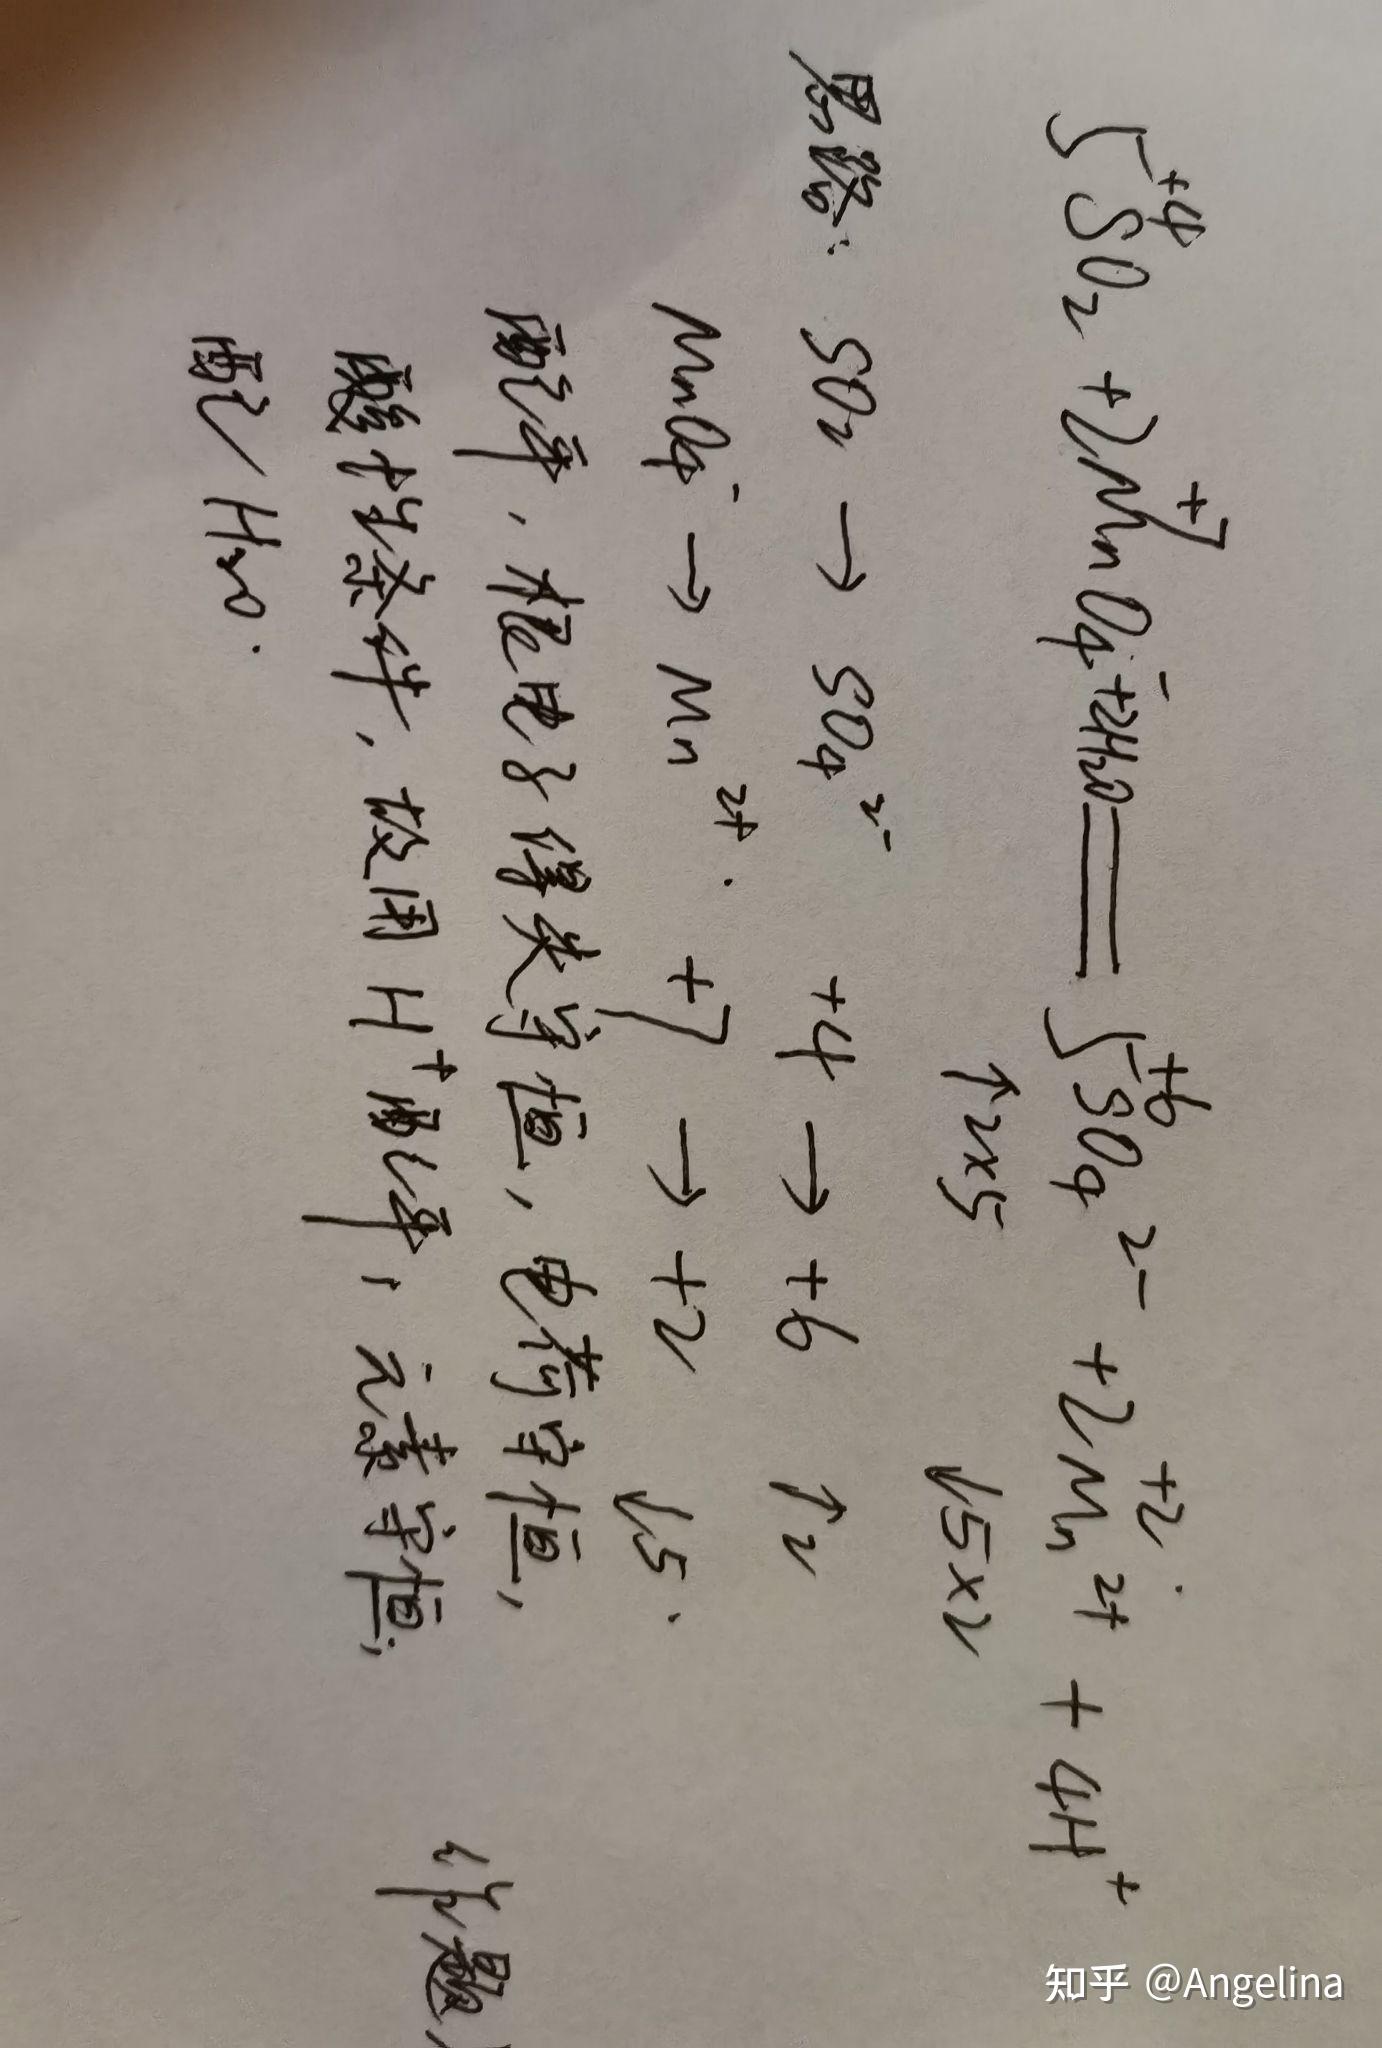 +4 +7 +6 +2
5SO₂ + 2MnO₄⁻ + 2H₂O = 5SO₄²⁻ + 2Mn²⁺ + 4H⁺
↑2×5 ↓5×2
思路: SO₂ → SO₄²⁻ +4 → +6 ↑2
MnO₄⁻ → Mn²⁺. +7 → +2 ↓5.
配平,根电子得失守恒,电荷守恒,
酸性条件,故用H⁺配平,元素守恒,
配H₂O.
作题
知乎 @Angelina